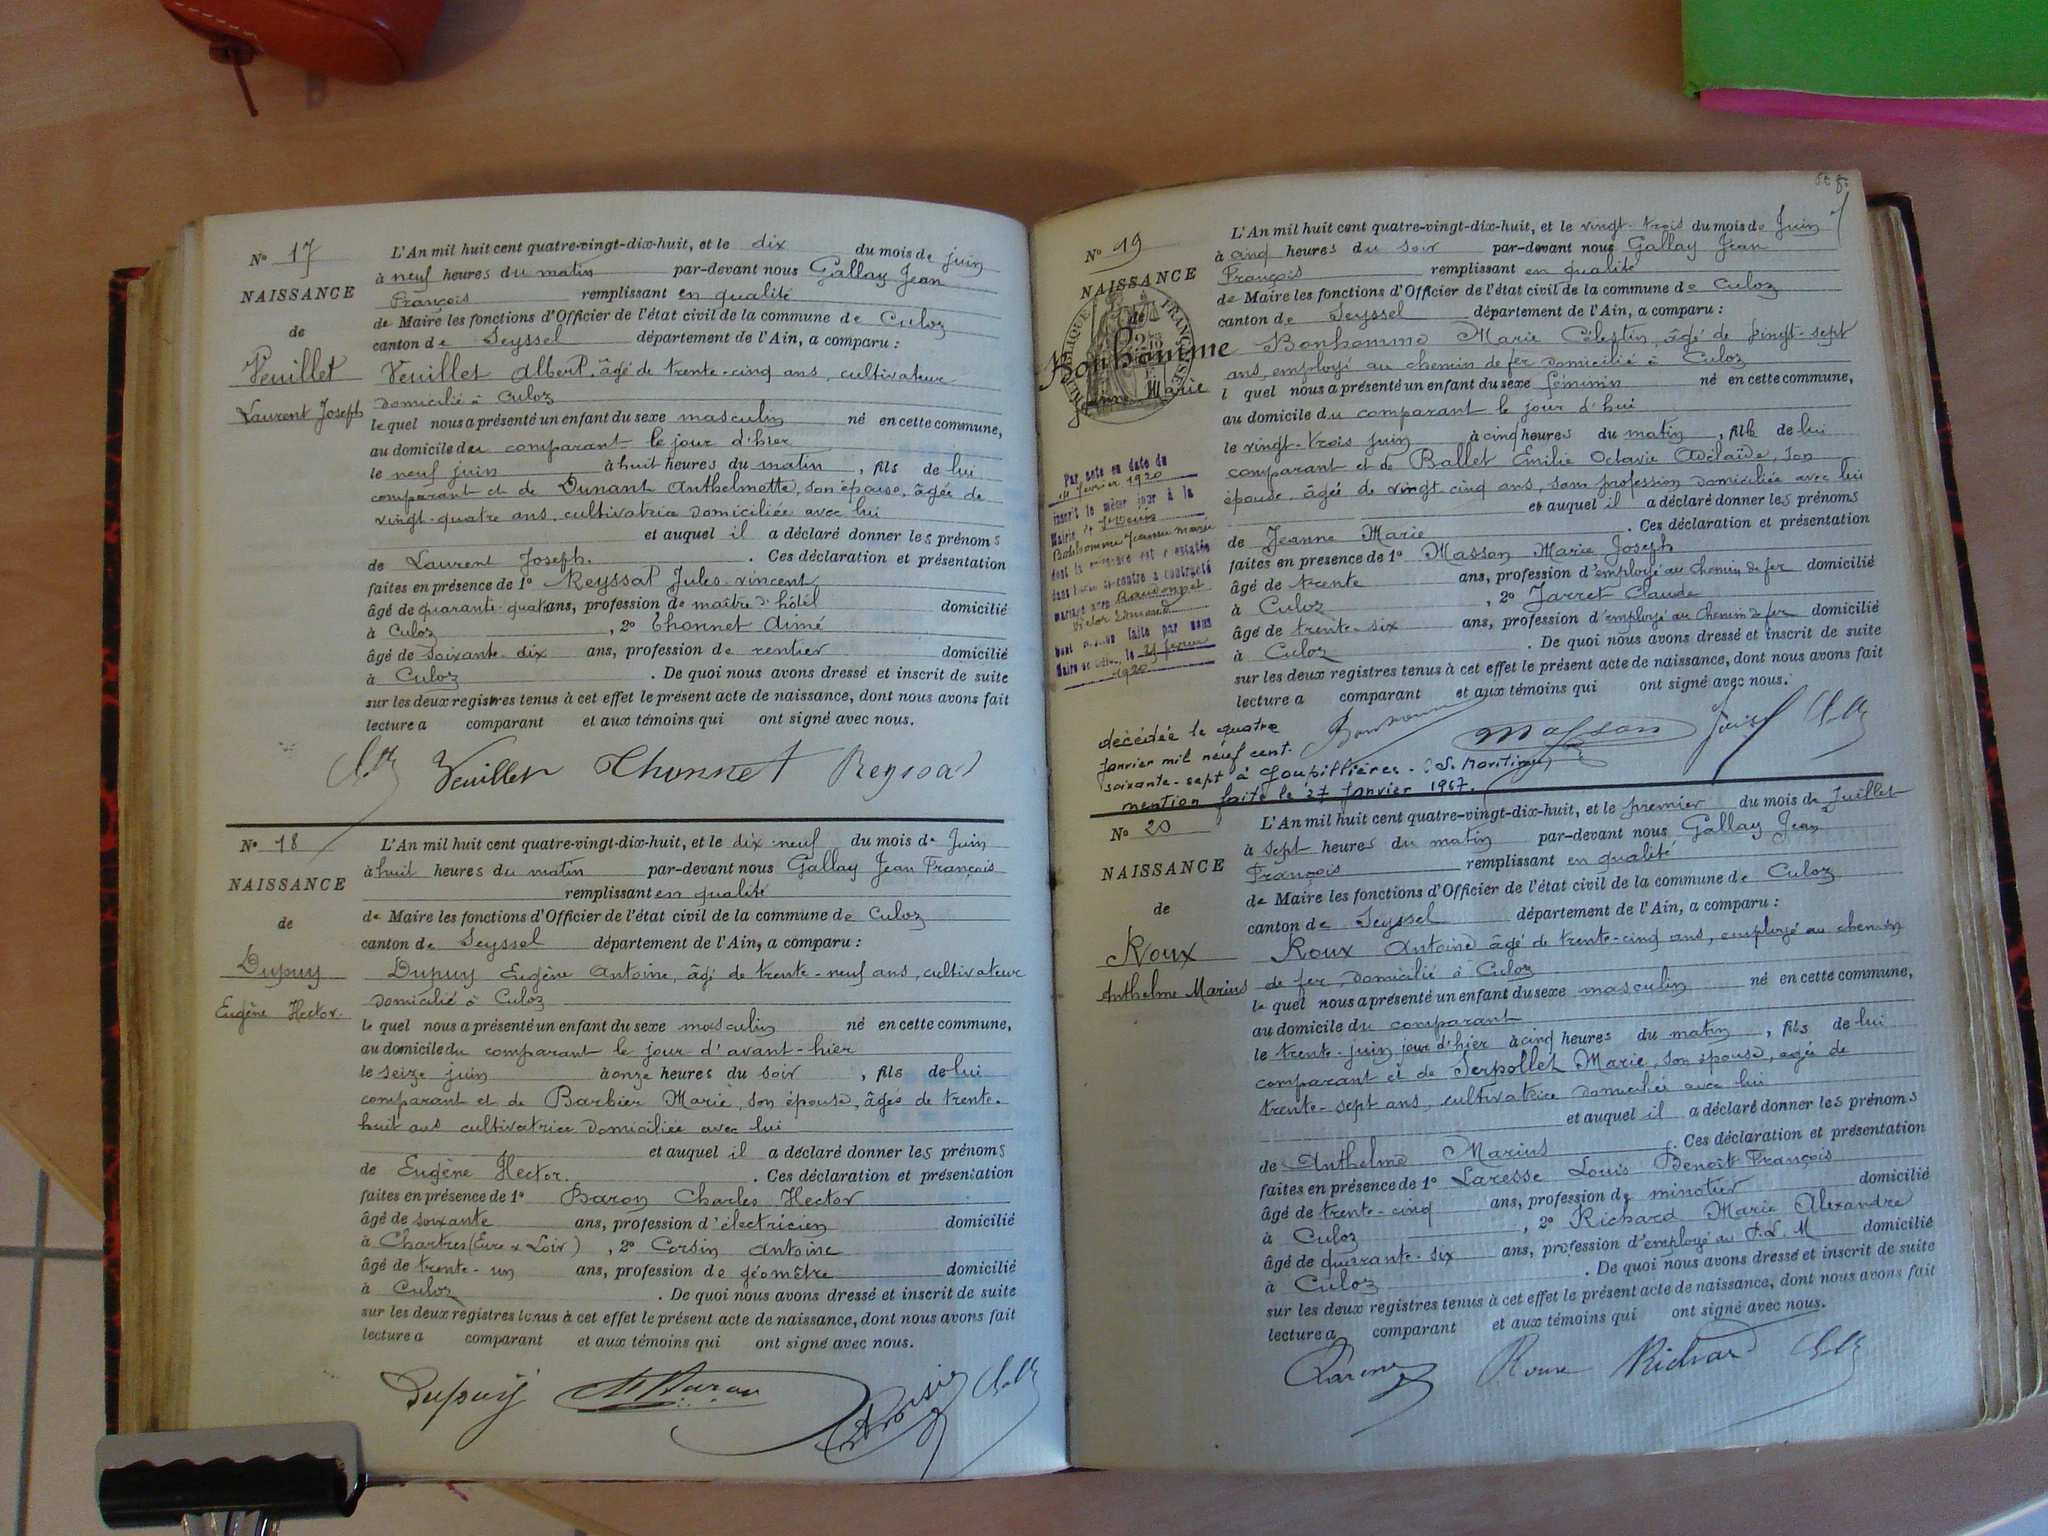 N° 17
NAISSANCE
de
Veuillet
Laurent Joseph
L'An mil huit cent quatre-vingt-dix-huit, et le dix du mois de juin
à neuf heures du matin par-devant nous Gallay Jean
François remplissant en qualité
de Maire les fonctions d'Officier de l'état civil de la commune de Culoz
canton de Seyssel département de l'Ain, a comparu :
Veuillet Albert, âgé de trente-cinq ans, cultivateur
domicilié à Culoz
le quel nous a présenté un enfant du sexe masculin né en cette commune,
au domicile du comparant le jour d'hier
le neuf juin à huit heures du matin, fils de lui
comparant et de Dunant Anthelmette, son épouse, âgée de
vingt-quatre ans, cultivatrice domiciliée avec lui
et auquel il a déclaré donner les prénoms
de Laurent Joseph. Ces déclaration et présentation
faites en présence de 1° Reyssat Jules vincent
âgé de quarante-quatre ans, profession de maître d'hôtel domicilié
à Culoz, 2° Thonnet Aimé
âgé de soixante-dix ans, profession de rentier domicilié
à Culoz. De quoi nous avons dressé et inscrit de suite
sur les deux registres tenus à cet effet le présent acte de naissance, dont nous avons fait
lecture a comparant et aux témoins qui ont signé avec nous.
Veuillet Thonnet Reyssat
N° 18
NAISSANCE
de
Dupuy
Eugène Hector.
L'An mil huit cent quatre-vingt-dix-huit, et le dix-neuf du mois de Juin
à huit heures du matin par-devant nous Gallay Jean François
remplissant en qualité
de Maire les fonctions d'Officier de l'état civil de la commune de Culoz
canton de Seyssel département de l'Ain, a comparu :
Dupuy Eugène Antoine, âgé de trente-neuf ans, cultivateur
domicilié à Culoz
le quel nous a présenté un enfant du sexe masculin né en cette commune,
au domicile du comparant le jour d'avant-hier
le seize juin à onze heures du soir, fils de lui
comparant et de Barbier Marie, son épouse, âgée de trente-
huit ans cultivatrice domiciliée avec lui
et auquel il a déclaré donner les prénoms
de Eugène Hector. Ces déclaration et présentation
faites en présence de 1° Baron Charles Hector
âgé de soixante ans, profession d'électricien domicilié
à Chartres (Eure & Loir), 2° Corsin Antoine
âgé de trente-un ans, profession de géomètre domicilié
à Culoz. De quoi nous avons dressé et inscrit de suite
sur les deux registres tenus à cet effet le présent acte de naissance, dont nous avons fait
lecture a comparant et aux témoins qui ont signé avec nous.
Dupuy
N° 19
NAISSANCE
de
Bonhomme
Jeanne Marie
RÉPUBLIQUE FRANÇAISE
L'An mil huit cent quatre-vingt-dix-huit, et le vingt-trois du mois de Juin
à cinq heures du soir par-devant nous Gallay Jean
François remplissant en qualité
de Maire les fonctions d'Officier de l'état civil de la commune de Culoz
canton de Seyssel département de l'Ain, a comparu :
Bonhomme Marie Célestin, âgé de vingt-sept
ans, employé au chemin de fer domicilié à Culoz
l quel nous a présenté un enfant du sexe féminin né en cette commune,
au domicile du comparant le jour d'hui
le vingt-trois juin à cinq heures du matin, fille de lui
comparant et de Ballet Emilie Octavie Adélaïde, son
épouse, âgée de vingt-cinq ans, sans profession domiciliée avec lui
et auquel il a déclaré donner les prénoms
de Jeanne Marie. Ces déclaration et présentation
faites en présence de 1° Masson Marie Joseph
âgé de trente ans, profession d'employé au chemin de fer domicilié
à Culoz, 2° Jarret Claude
âgé de trente-six ans, profession d'employé au chemin de fer domicilié
à Culoz. De quoi nous avons dressé et inscrit de suite
sur les deux registres tenus à cet effet le présent acte de naissance, dont nous avons fait
lecture a comparant et aux témoins qui ont signé avec nous.
Bonhomme Masson
Par acte en date du
février 1920
inscrit le même jour à la
Mairie de
Bonhomme Jeanne Marie
dont la naissance est constatée
dans l'acte ci-contre a contracté
mariage avec
dont mention faite par nous
Maire le 25 février
1920
décédée le quatre
janvier mil neuf cent
soixante-sept à Goupillières (S. Maritime)
mention faite le 27 Janvier 1967.
N° 20
NAISSANCE
de
Roux
Anthelme Marius
L'An mil huit cent quatre-vingt-dix-huit, et le premier du mois de Juillet
à sept heures du matin par-devant nous Gallay Jean
François remplissant en qualité
de Maire les fonctions d'Officier de l'état civil de la commune de Culoz
canton de Seyssel département de l'Ain, a comparu :
Roux Antoine âgé de trente-cinq ans, employé au chemin
de fer, domicilié à Culoz
le quel nous a présenté un enfant du sexe masculin né en cette commune,
au domicile du comparant
le trente-juin jour d'hier à cinq heures du matin, fils de lui
comparant et de Serpollet Marie, son épouse, agée de
trente-sept ans, cultivatrice domiciliée avec lui
et auquel il a déclaré donner les prénoms
de Anthelme Marius. Ces déclaration et présentation
faites en présence de 1° Laresse Louis Benoît François
âgé de trente-cinq ans, profession de minotier domicilié
à Culoz, 2° Richard Marie Alexandre
âgé de quarante-six ans, profession d'employé au P.L.M domicilié
à Culoz. De quoi nous avons dressé et inscrit de suite
sur les deux registres tenus à cet effet le présent acte de naissance, dont nous avons fait
lecture a comparant et aux témoins qui ont signé avec nous.
Roux Richard